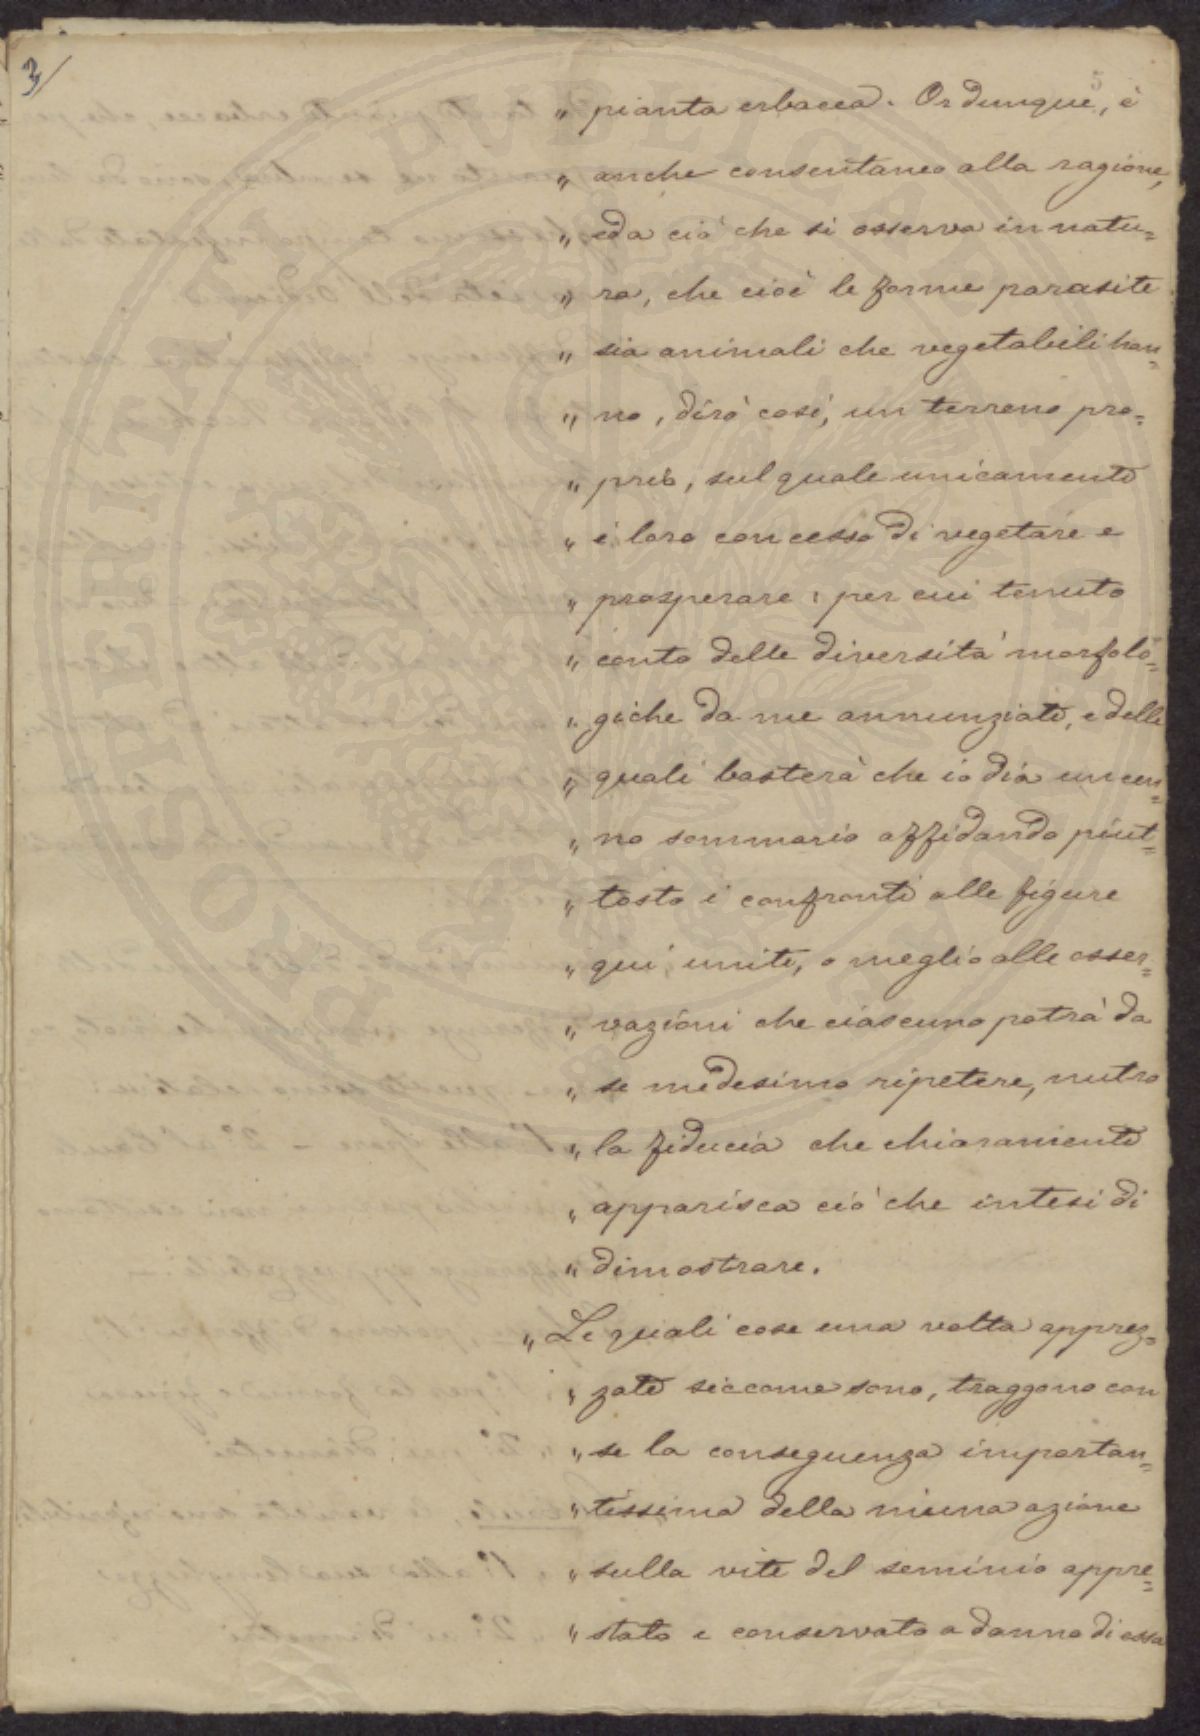 3/
5
„ pianta erbacea. Or dunque, è
„ anche consentaneo alla ragione,
„ e da ciò che si osserva in natu=
„ ra, che cioè le forme parasite
„ sia animali che vegetabili han=
„ no, dirò così, un terreno pro=
„ prio, sul quale unicamente
„ è loro concesso di vegetare e
„ prosperare; per cui tenuto
„ conto delle diversità morfolo=
„ giche da me annunziate, e delle
„ quali basterà che io dia un cen=
„ no sommario affidando piut=
„ tosto i confronti alle figure
„ qui unite, o meglio alle osser=
„ vazioni che ciascuno potrà da
„ se medesimo ripetere, nutro
„ la fiducia che chiaramente
„ apparisca ciò che intesi di
„ dimostrare.
„ Le quali cose una volta apprez=
„ zate siccome sono, traggono con
„ se la conseguenza importan=
„ tissima della niuna azione
„ sulla vite del seminio appre=
„ stato e conservato a danno di essa